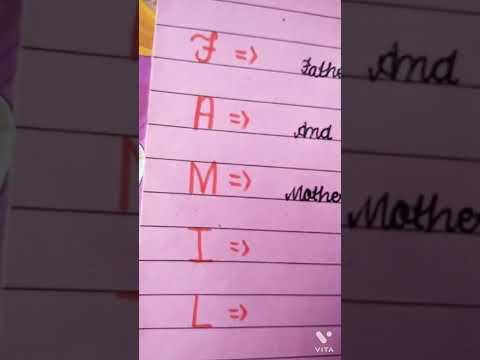 F => Fathe And
A => And
M => Mothe Mothe
I =>
L =>
VITA